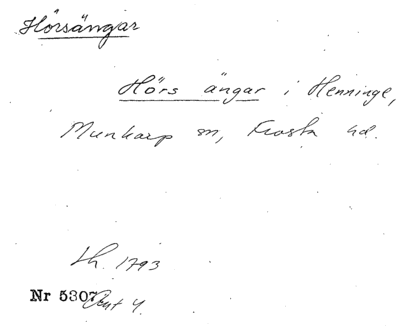 Hörsängar
Hörs ängar i Henninge,
Munkarp sn, Frosta hd.
Lh. 1793
Nr 5307 Avt 4.